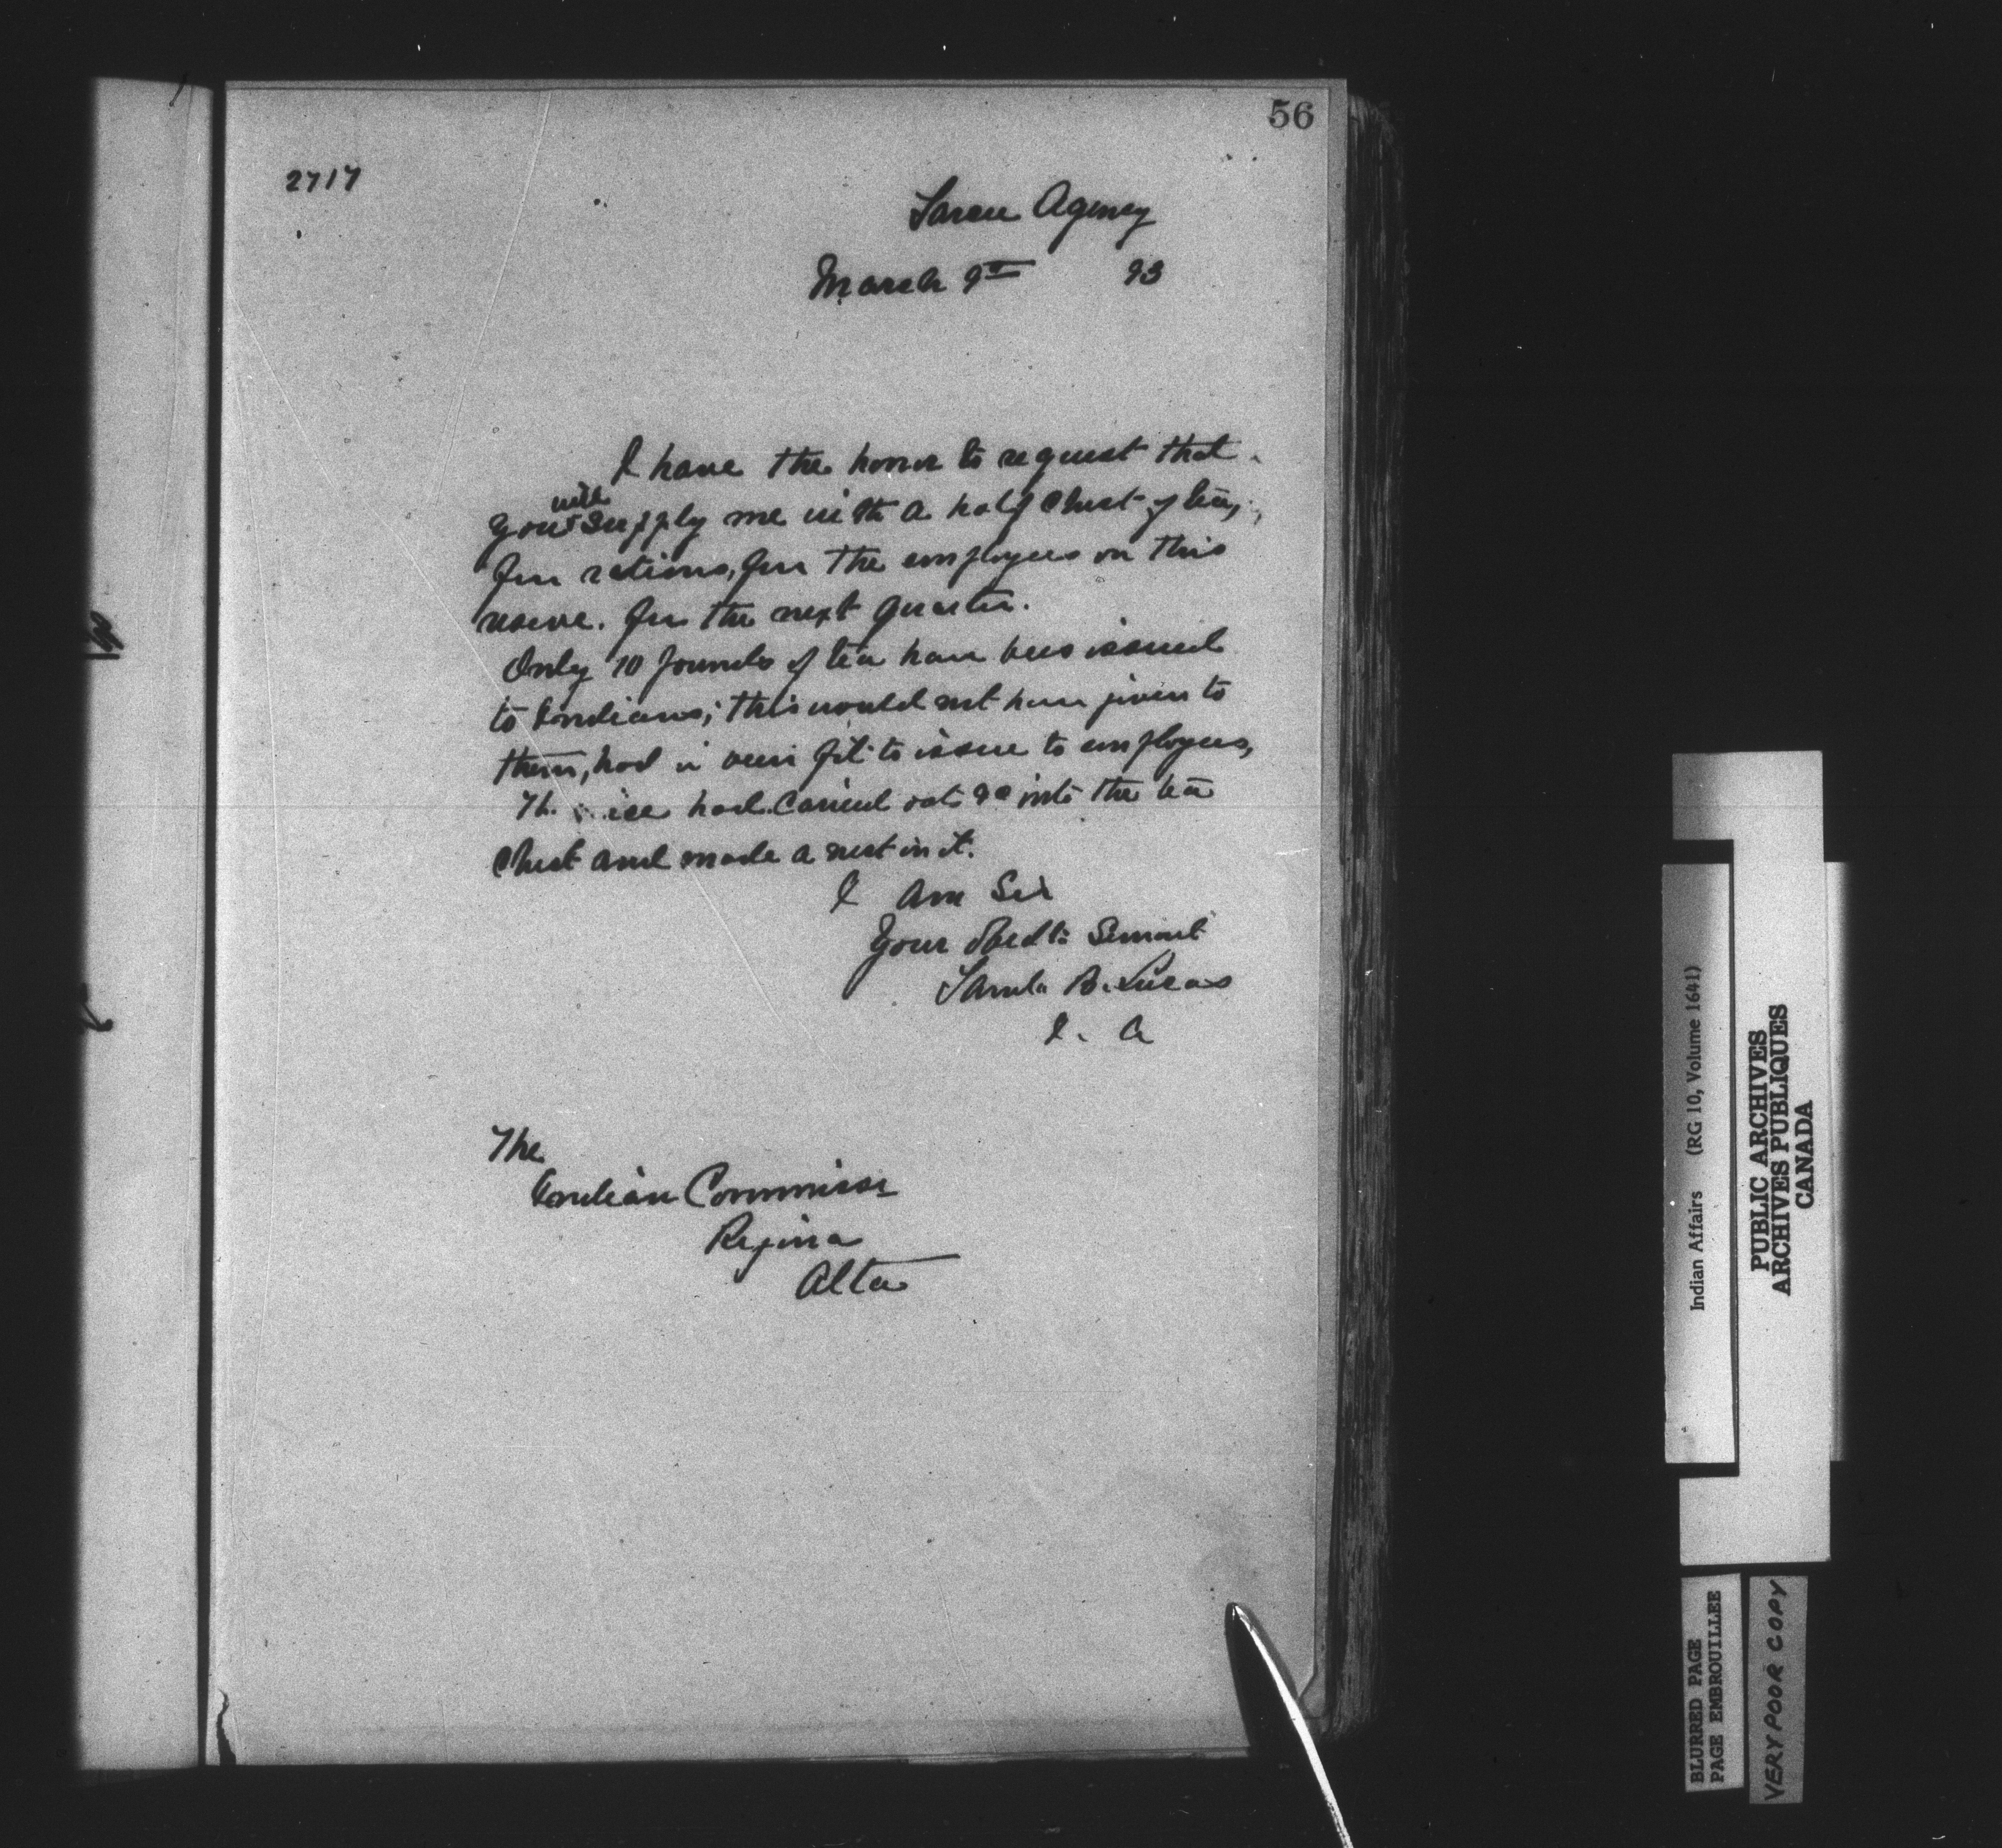 56
2717
Sarcee Agency
March 9th 93
I have the honor to request that
will
you supply me with a half chest of tea,
for rations, for the employees on this
reserve. for the next quarter.
Only 10 pounds of tea have been issued
to Indians; this would not have given to
them, had it been fit to issue to employees,
The mice had carried oats &c into the tea
chest and made a nest in it.
I am Sir
Your Obedt Servant
Saml. B. Lucas
I. A
The
Indian Commissr
Regina
Alta
Indian Affairs (RG 10, Volume 1641)
PUBLIC ARCHIVES
ARCHIVES PUBLIQUES
CANADA
BLURRED PAGE
PAGE EMBROUILLEE
VERY POOR COPY